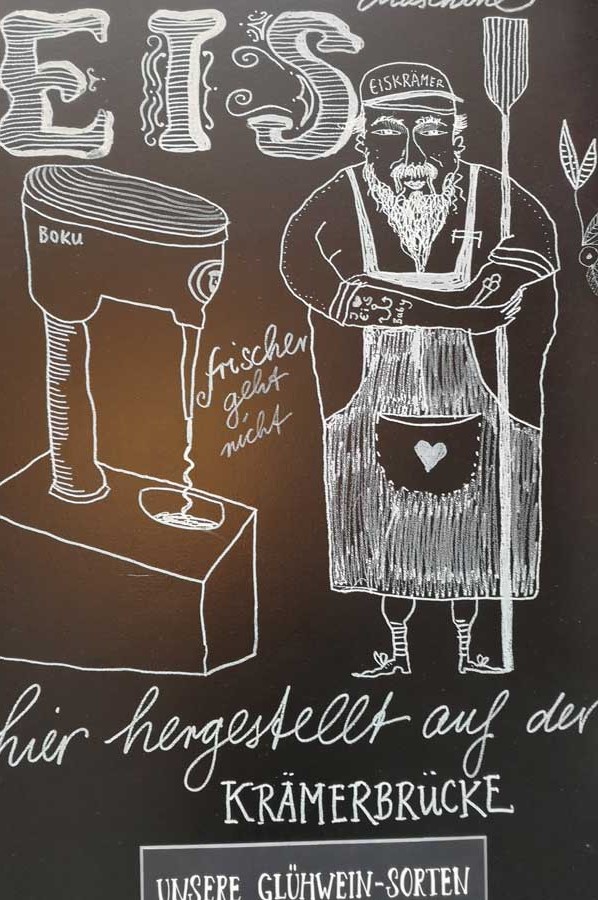 EIS
EISKRÄMER
BOKU
frischer
geht
nicht
Eis
Baby
hier hergestellt auf der
KRÄMERBRÜCKE
UNSERE GLÜHWEIN-SORTEN